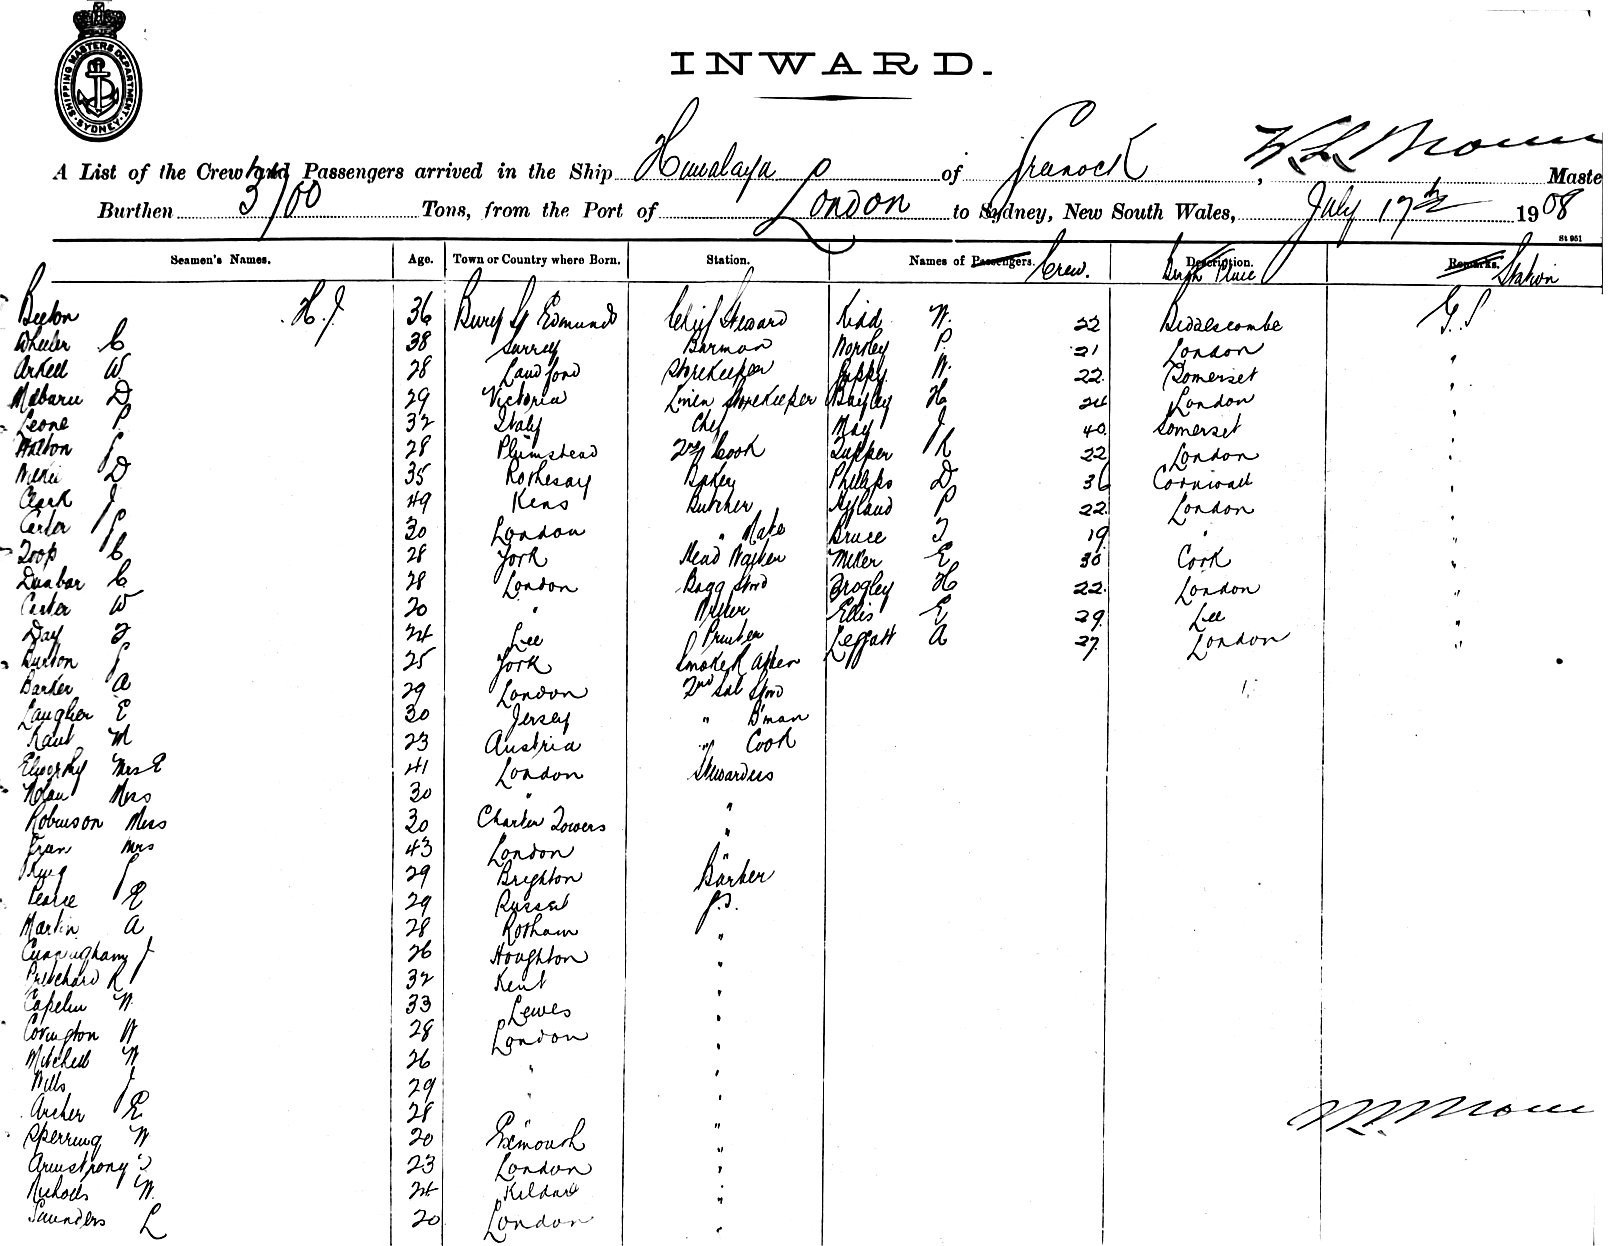 SHIPPING MASTERS DEPARTMENT
SYDNEY
INWARD.
A List of the Crew and Passengers arrived in the Ship Himalaya of Greenock, Maste
Burthen Tons, from the Port of London to Sydney, New South Wales, July 17th 1908
St 961
Seamen's Names. Age. Town or Country where Born. Station. Names of Passengers. Crew. Description. Birth Place Remarks. Station
Beeton H. J. 36 Bury St Edmunds Chief Steward Kidd W. 22 G. S
Wheeler C 38 Surrey Barman Worsley P. 21 London "
Arkell W 28 Landford Storekeeper W. 22 Somerset "
D 29 Victoria Linen Storekeeper Bayley H 24 London "
Leone P. 32 Italy Chef May J 40 Somerset "
Walton 28 Plumstead 2nd Cook Tupper R 22 London "
Wilkie D 35 Rothesay Baker Phillips D 36 Cornwall "
Clark J 49 Kens Butcher Hyland P 22 London "
Carter 30 London " Mate Bruce T 19 " "
Toop C 28 York Head Waiter E 30 Cook "
Dunbar C 28 London Bagg Stwd Brogley H 22 London "
Carter W 20 " Writer Ellis E 29 Lee "
Day T 24 Lee Printer Leggatt A 27 London "
Burton 25 York Smoke R
Barker A 29 London 2nd Sal Stwd
Laugher E 30 Jersey " B'man
Kaut M 23 Austria " Cook
Mrs E 41 London Stewardess
Nolan Miss 30 " "
Robinson Miss 30 Charter Towers "
Mrs 43 London "
King 29 Brighton Barber
Pearce E 29 Russel G.S.
Martin A 28 Rotham "
Cunningham J 26 Houghton "
Pritchard R 32 Kent "
Capelin W 33 Lewes "
Covington W 28 London "
Mitchell W 26 " "
Wills J 29 " "
Archer E 28 " "
Sperring W 20 Exmouth "
Armstrong 23 London "
Nichols W. 24 Kildare "
Saunders L 20 London "